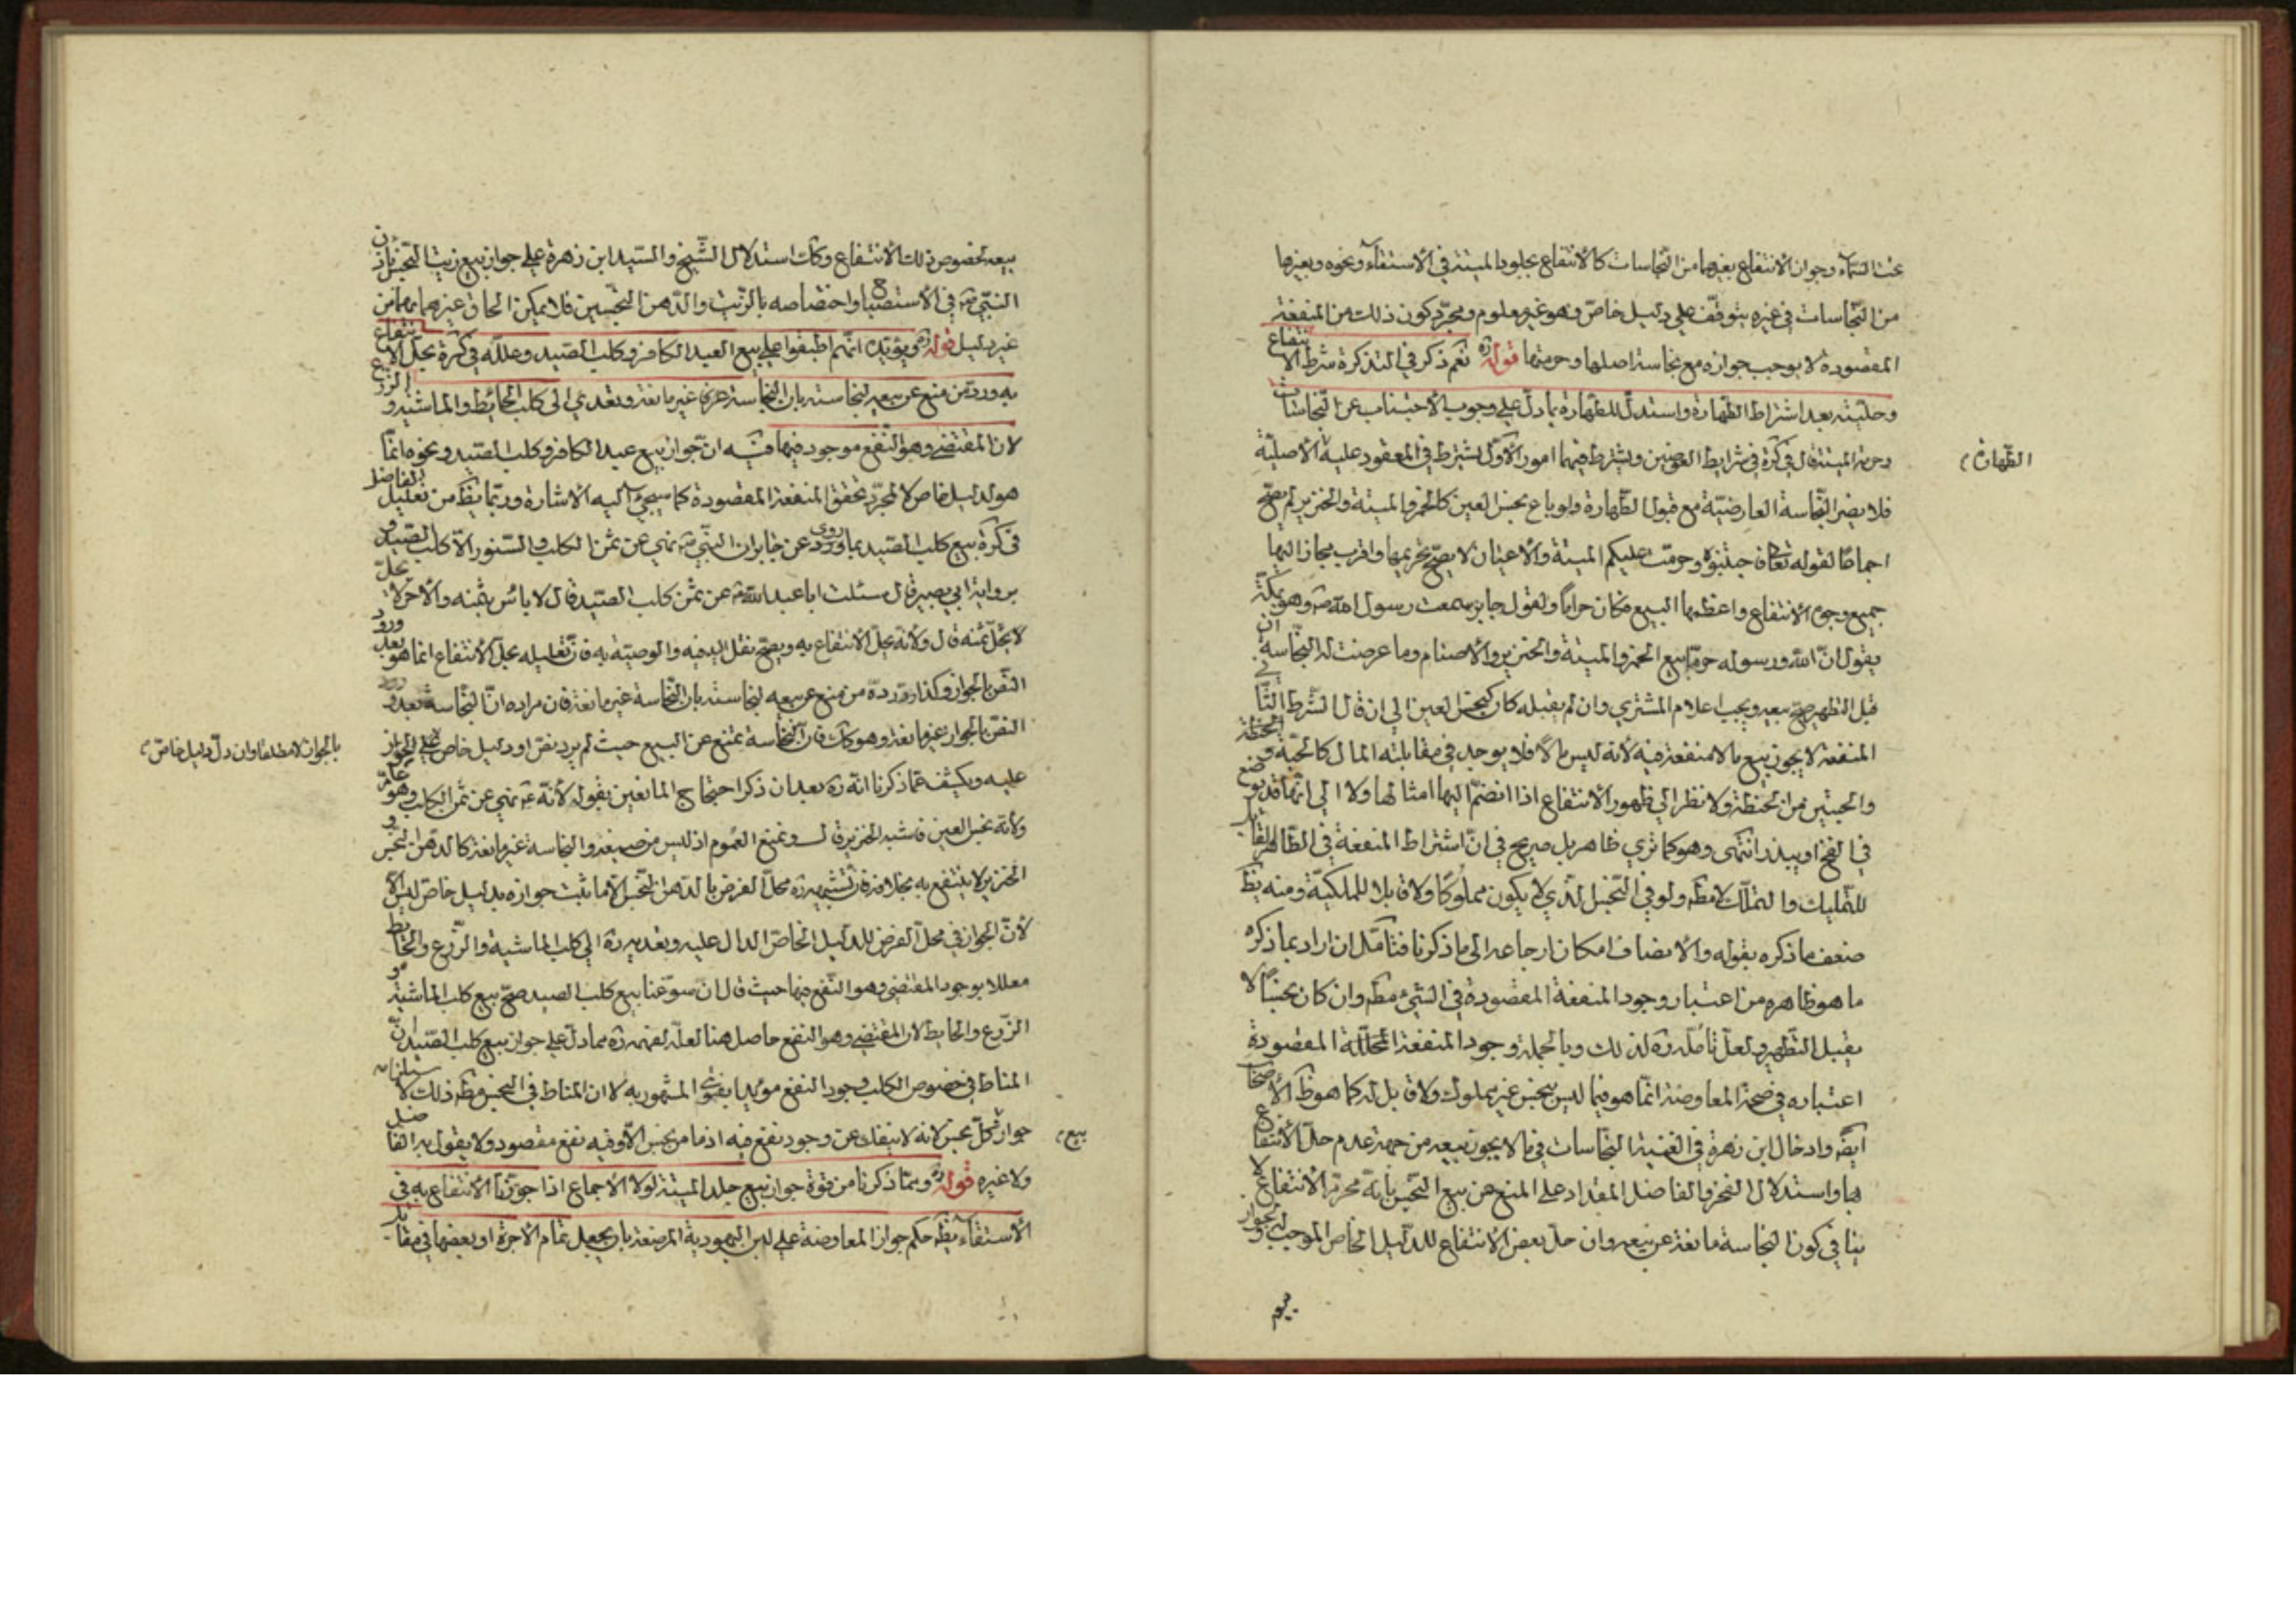 تحت السماء وجواز الانتفاع بغيرهما من النجاسات كالانتفاع بجلود الميتة في الاستقاء ونحوه وبغيرها
من النجاسات في غيره يتوقف على دليل خاص وهو غير معلوم ومجرد كون ذلك من المنفعة
المقصودة لا يوجب جوازه مع نجاسة اصلها وحرمتها قوله ره نعم ذكر في التذكرة شرط الانتفاع
وحليته بعد اشتراط الطهارة واستدل للطهارة بما دل على وجوب الاجتناب عن النجاسات
وحرمة الميتة قال في كرة في شرايط العوضين ويشترط فيهما امور الاول يشترط في المعقود عليه الاصلية
الطهارة
فلا يضر النجاسة العارضية مع قبول الطهارة ولو باع نجس العين كالخمر والميتة والخنزير لم يصح
اجماعا لقوله تعالى فاجتنبوه وحرمت عليكم الميتة والاعيان لا يصح تحريمها واقرب مجاز اليها
جميع وجوه الانتفاع واعظمها البيع فكان حراما ولقول جابر سمعت رسول الله ص وهو بمكة
يقول ان الله ورسوله حرما بيع الخمر والميتة والخنزير والاصنام وما عرضت له النجاسة ان
قبل التطهير صح بيعه ويجب اعلام المشتري وان لم يقبله كان كنجس العين الى ان قال الشرط الثاني
المنفعة لا يجوز بيع ما لا منفعة فيه لانه ليس مالا فلا يوجد في مقابلته المال كالحبة و
والحبتين من الحنطة ولا نظر الى ظهور الانتفاع اذا انضم اليها امثالها ولا الى انها قد توضع
في الفخ او يبذر انتهى وهو كما ترى ظاهر بل صريح في ان اشتراط المنفعة في الطاهر القابل
للتمليك والتملك لا مطه ولو في النجس الذي لا يكون مملوكا ولا قابلا للملكية ومنه يظ
ضعف ما ذكره بقوله والانصاف امكان ارجاعه الى ما ذكرنا فتامل ان اراد بما ذكره
ما هو ظاهره من اعتبار وجود المنفعة المقصودة في الشئ مطه وان كان نجسا لا
يقبل التطهير ولعل تامله ره لذلك وبالجملة وجود المنفعة المحللة المقصودة
اعتباره في صحة المعاوضة انما هو فيما ليس بنجس غير مملوك ولا قابل له كما هو ظ الاصحاب
ايضه وادخال ابن زهرة في الغنية النجاسات في ما لا يجوز بيعه من جهة عدم حل الانتفاع
بها واستدلال الفخر والفاضل المقداد على المنع عن بيع النجس بانه محرم الانتفاع لا
ينافي كون النجاسة مانعة عن بيعه وان حل بعض الانتفاع للدليل الخاص الموجب لجواز
بيعه
بيعه لخصوص ذلك الانتفاع وكك استدلال الشيخ والسيد ابن زهرة على جواز بيع زيت النجس باذن
النبي ص في الاستصباح واختصاصه بالزيت والدهن النجسين فلا يمكن الحاق غيرهما بهما من
غير دليل قوله ره ويؤيده انهم اطبقوا على بيع العبد الكافر وكلب الصيد وعلله في كرة بحل الانتفاع
به ورد من منع عن بيعه لنجاسته بان النجاسة غير مانعة وتعدى الى كلب الحائط والماشية والزرع
لان المقتضي وهو النفع موجود فيها فيه ان جواز بيع عبد الكافر وكلب الصيد ونحوه انما
هو لدليل خاص لا لمجرد تحقق المنفعة المقصودة كما سيجئ اليه الاشارة وربما يظ من تعليل الفاضل
في كرة بيع كلب الصيد بما روى عن جابر ان النبي ص نهى عن ثمن الكلب والسنور الا كلب الصيد و
برواية ابي بصير قال سئلت ابا عبد الله ع عن ثمن كلب الصيد قال لا باس بثمنه والاخر لا يحل
لا يحل ثمنه قال ولانه يحل الانتفاع به ويصح نقل اليد فيه والوصية به فان تعليله بحل الانتفاع انما هو بعد ورود
النص بالجواز وكذا رده من منع عن بيعه لنجاسته بان النجاسة غير مانعة فان مراده ان النجاسة بعد ورود
النص بالجواز غير مانعة وهو كك فان النجاسة تمنع عن البيع حيث لم يرد نص او دليل خاص على الجواز
بالجواز لا مطلقا وان دل دليل خاص
عليه ويكشف عما ذكرنا انه ره بعد ان ذكر احتجاج المانعين بقوله لانه ع نهى عن ثمن الكلب وهو عام
ولانه نجس العين فاشبه الخنزير قال ونمنع العموم اذ ليس من صيغه والنجاسة غير مانعة كالدهن النجس و
الخنزير لا ينتفع به بخلافه فان تشبيهه ره محل الفرض بالدهن النجس الذي ثبت جوازه بدليل خاص ليس الا
لان الجواز في محل الفرض للدليل الخاص الدال عليه وتعديه ره الى كلب الماشية والزرع والحايط
معللا بوجود المقتضي وهو النفع فيها حيث قال ان سوغنا بيع كلب الصيد صح بيع كلب الماشية و
الزرع والحايط لان المقتضي وهو النفع حاصل هنا لعله لفهمه ره مما دل على جواز بيع كلب الصيد ان
المناط في خصوص الكلب وجود النفع مؤيدا بفتوى المشهور به لا ان المناط في النجس مطه ذلك لاستلزامه
جواز كل نجس لانه لا ينفك عن وجود نفع فيه اذ ما من نجس الا وفيه نفع مقصود ولا يقول به الفاضل
بيع
ولا غيره قوله ره ومما ذكرنا من قوة جواز بيع جلد الميتة لولا الاجماع اذا جوزنا الانتفاع به في
الاستقاء يظه حكم جواز المعاوضة على لبن اليهودية المرضعة بان يجعل تمام الاجرة او بعضها في مقابل